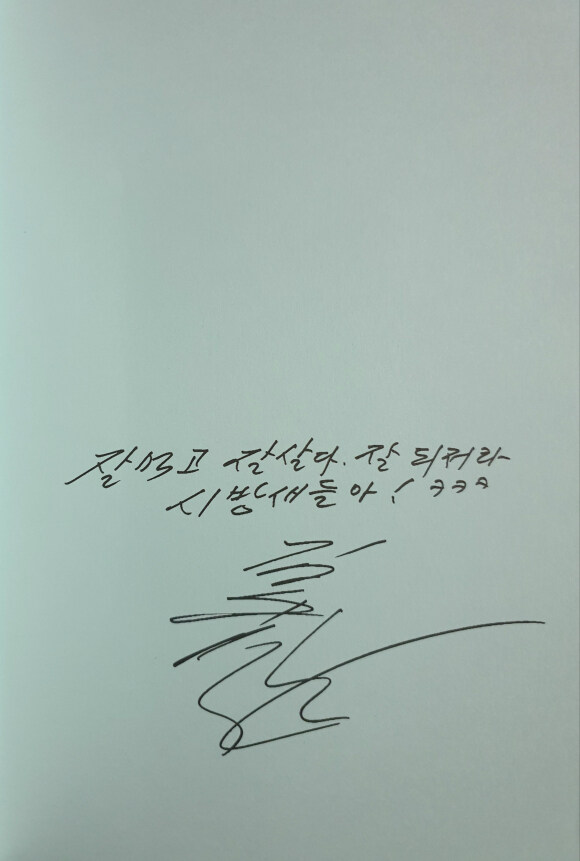 잘먹고 잘살다. 잘 뒤져라
시방새들아! ㅋㅋㅋ